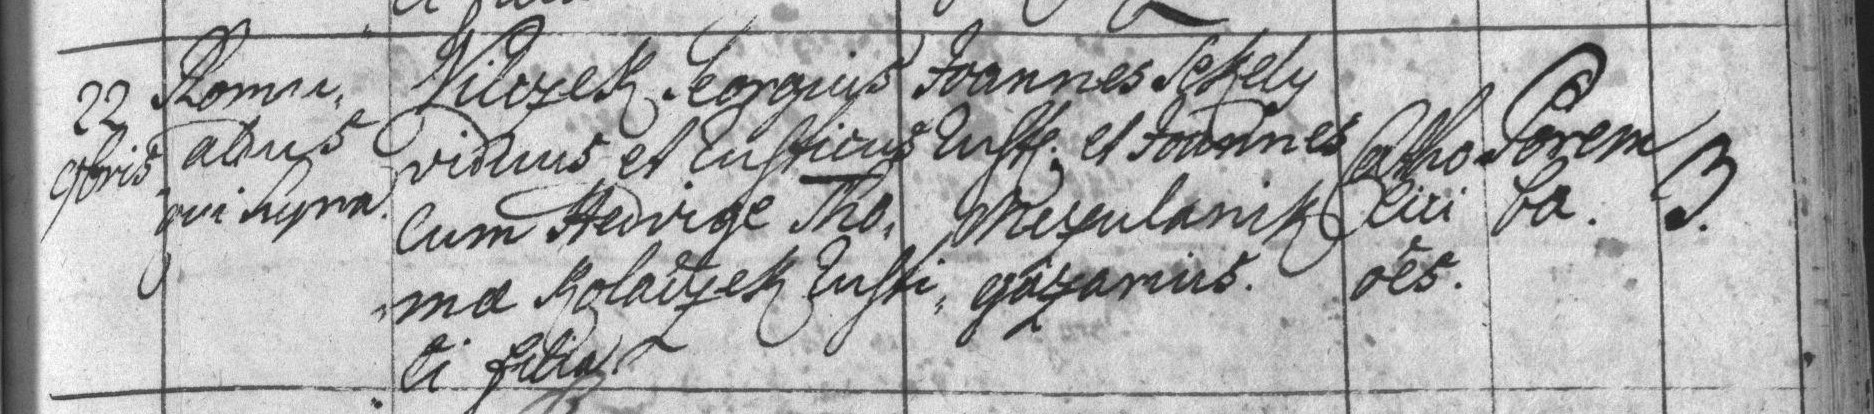 22
9bris
Romu,
aldus
qui supra.
Vilczek Georgius
viduus et rusticus
cum Hedvige Tho,
mæ Kolaczek rusti,
ci filia
Joannes Sekely
rust. et Joannes
gazarius.
Catho
lici
oēs.
Porem
ba.
3.